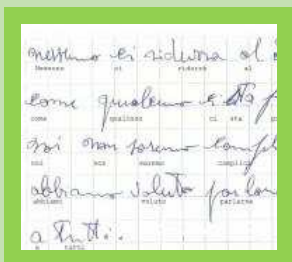 nessuno ci ridurrà al
Nessuno ci ridurrà al
come qualcuno ci sta
come qualcuno ci sta
noi non saremo compl
noi non saremo complici
abbiamo voluto parlarn
abbiamo voluto parlarne
a tutti.
a tutti